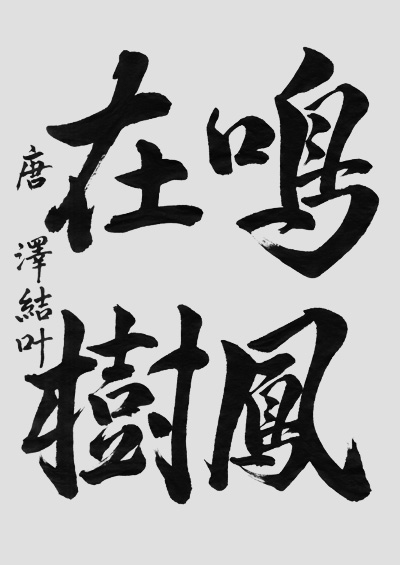 鳴鳳
在樹
唐澤結叶